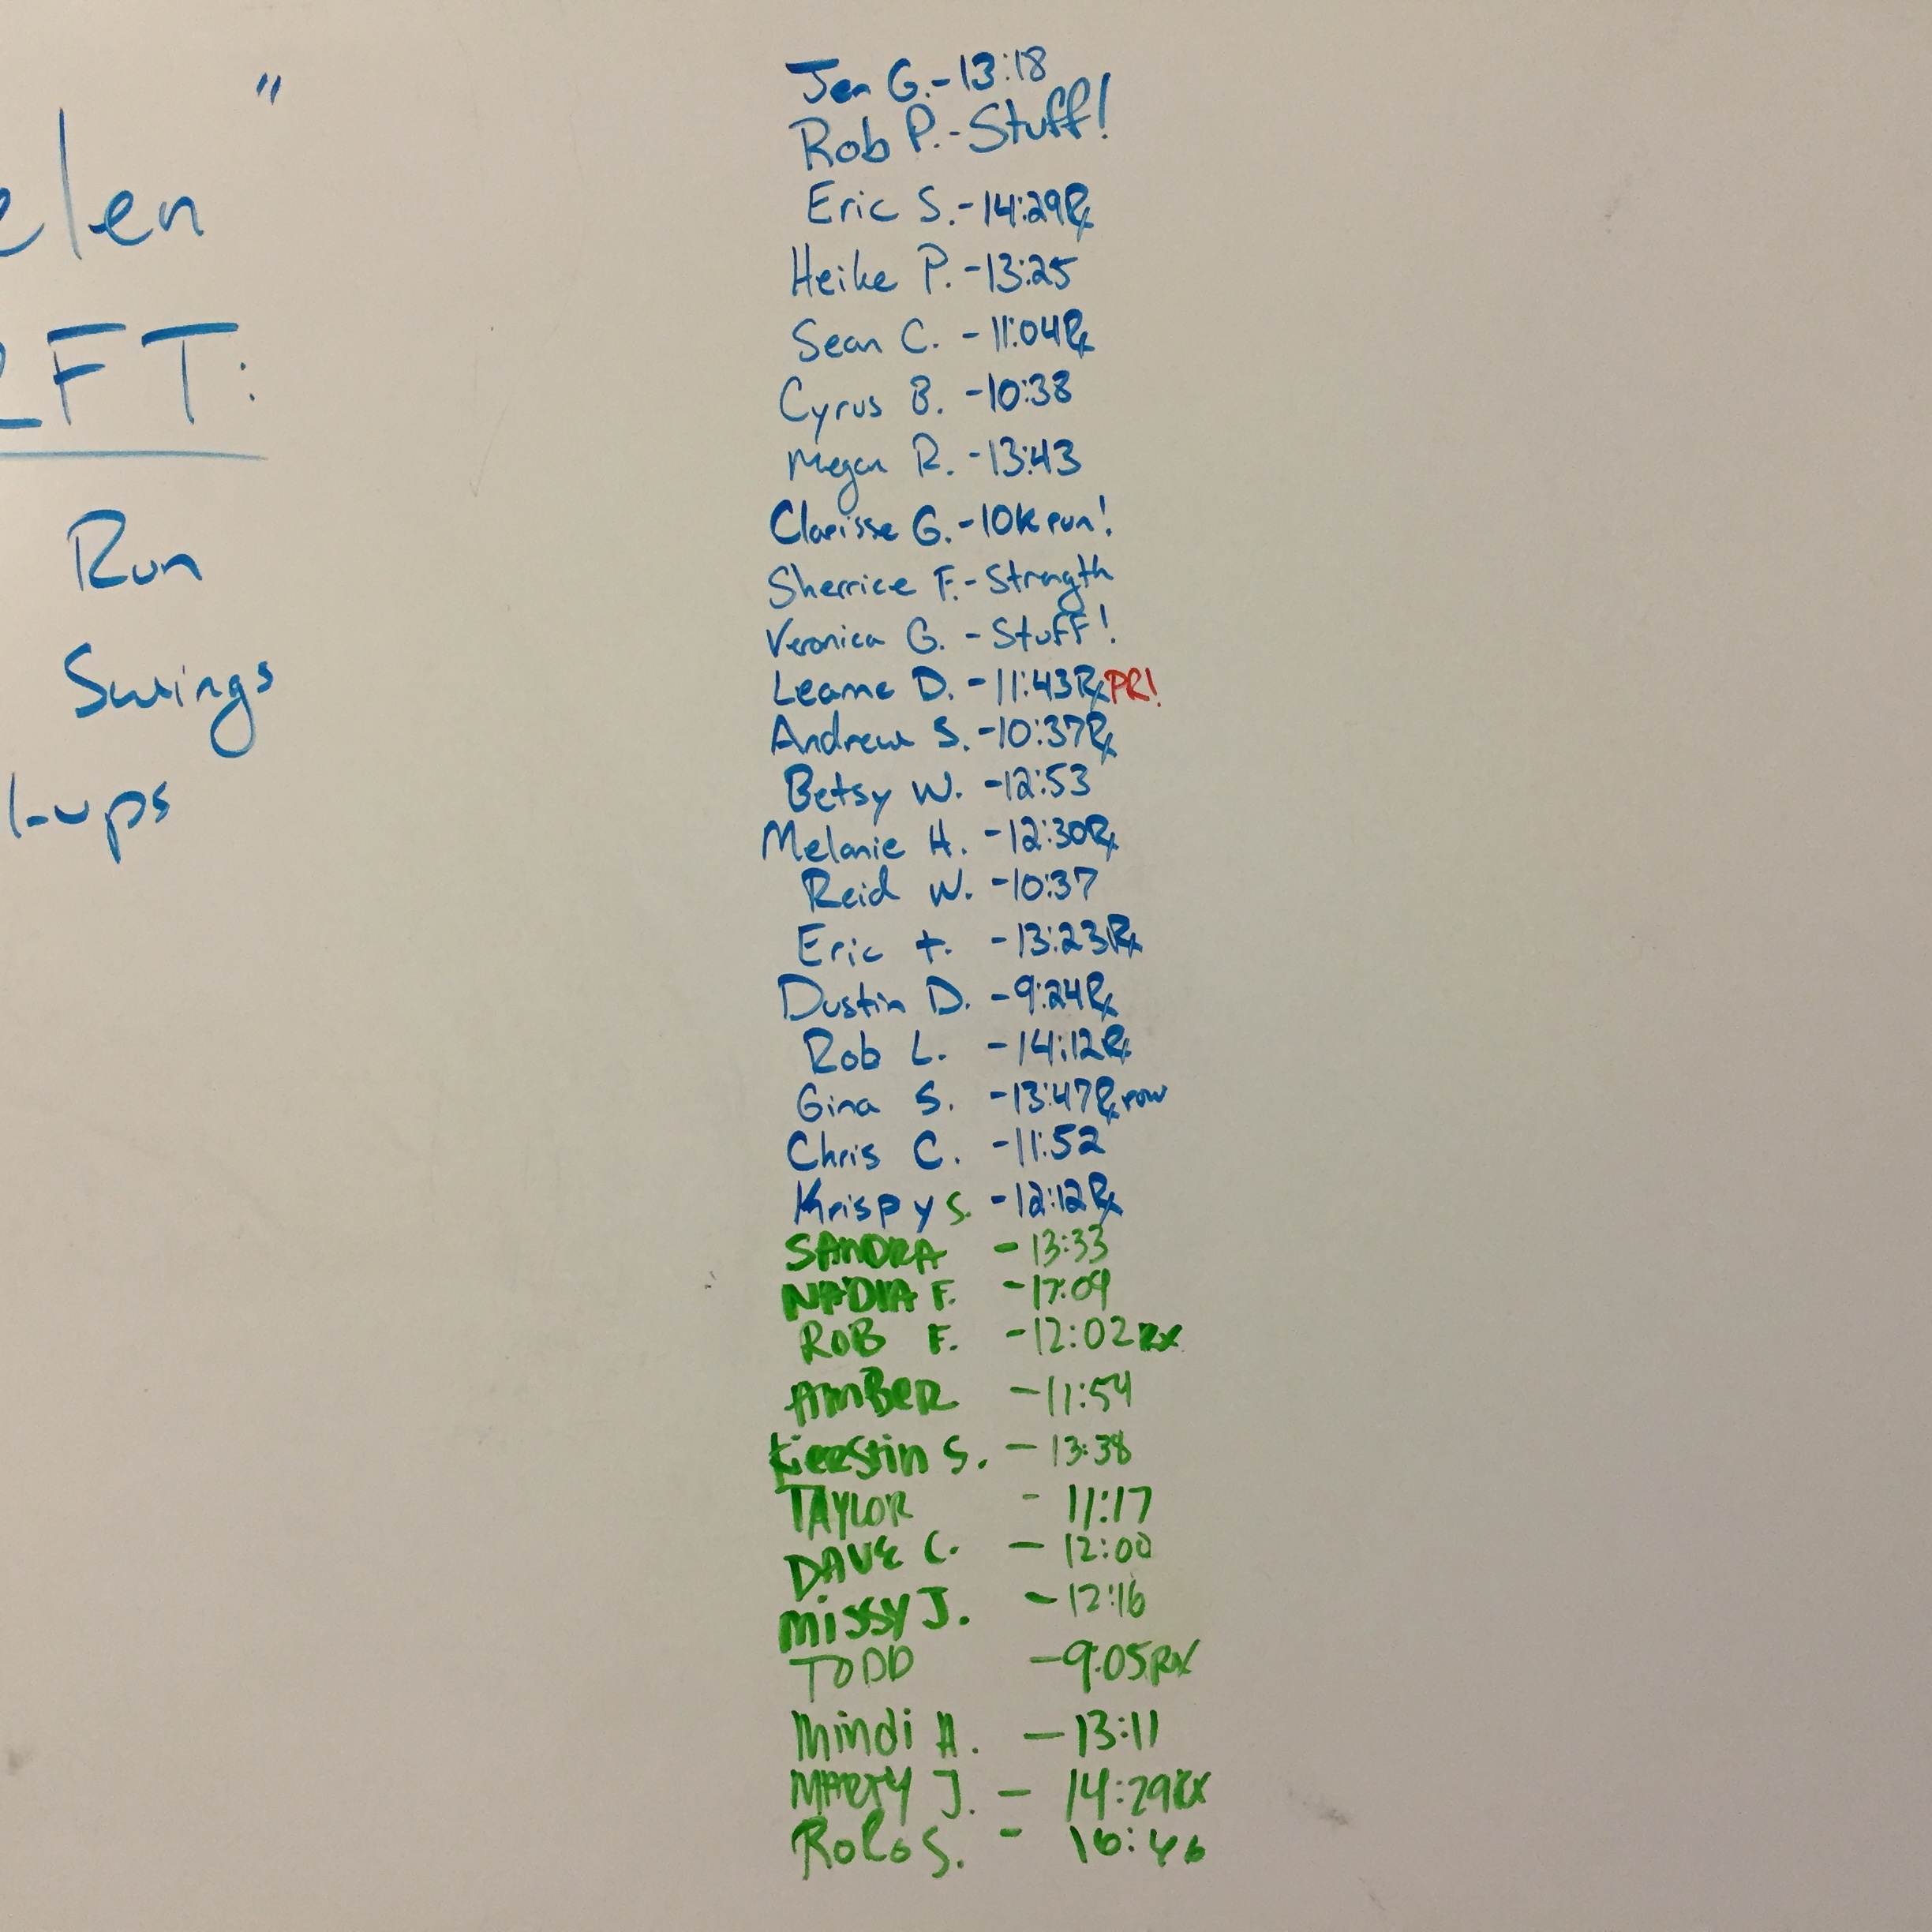 "
elen
RFT:
Run
Swings
l-ups
Jen G. - 13:18
Rob P. - Stuff!
Eric S. - 14:29 Rx
Heike P. - 13:25
Sean C. - 11:04 Rx
Cyrus B. - 10:38
Megan R. - 13:43
Clarisse G. - 10K run!
Sherrice F. - Strength
Veronica G. - Stuff!
Leanne D. - 11:43 Rx PR!
Andrew S. - 10:37 Rx
Betsy W. - 12:53
Melanie H. - 12:30 Rx
Reid W. - 10:37
Eric t. - 13:23 Rx
Dustin D. - 9:24 Rx
Rob L. - 14:12 Rx
Gina S. - 13:47 Rx row
Chris C. - 11:52
Krispy S. - 12:12 Rx
SANDRA - 13:33
NADIA F. - 17:09
ROB F. - 12:02 RX
AMBER - 11:54
Kierstin S. - 13:38
TAYLOR - 11:17
DAVE C. - 12:00
MISSY J. - 12:16
TODD - 9:05 RX
Mindi H. - 13:11
MARTY J. - 14:29 RX
Rolo S. - 16:46